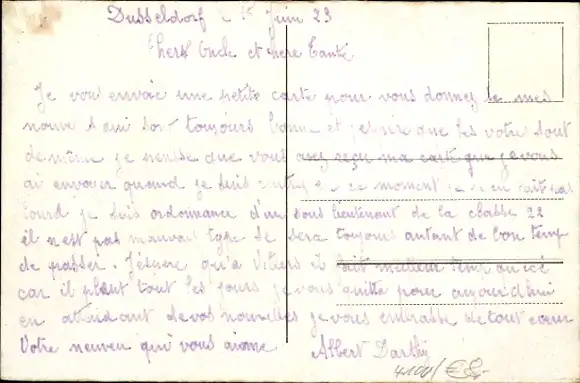 Dusseldorf le 15 Juin 23
Chers Oncle et chere Tante
Je vous envoie une petite carte pour vous donnez de mes
nouvelles qui sont toujours bonne et j'espère que les votre sont
de même je pensse que vous avez reçu ma carte que je vous
ai envoyer quand je suis ce moment je s'en fait pas
lourd je suis ordonnance d'un sous lieutenant de la classe 22
il n'est pas mauvais type se sera toujours autant de bon temp
de passer. J'espere qu'a Vitiers il fait meilleur temp qu'ici
car il pleut tout les jours je vous quitte pour aujourd'hui
en attendant de vos nouvelles je vous embrasse de tout cœur
Votre neveu qui vous aime Albert
4100/ €8,-